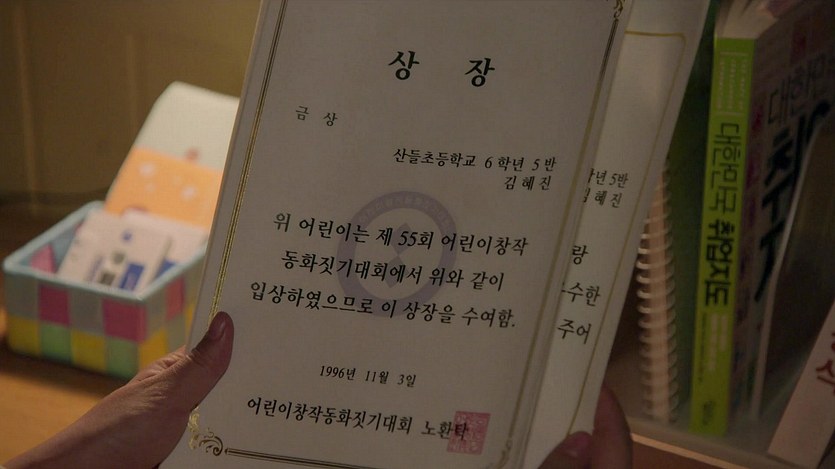 상 장
금 상
산들초등학교 6학년 5반
김혜진
위 어린이는 제 55회 어린이창작
동화짓기대회에서 위와 같이
입상하였으므로 이 상장을 수여함.
1996년 11월 3일
어린이창작동화짓기대회 노환탁
학년 5반
혜진
랑
수한
주어
대한민국 취업지도
대한민